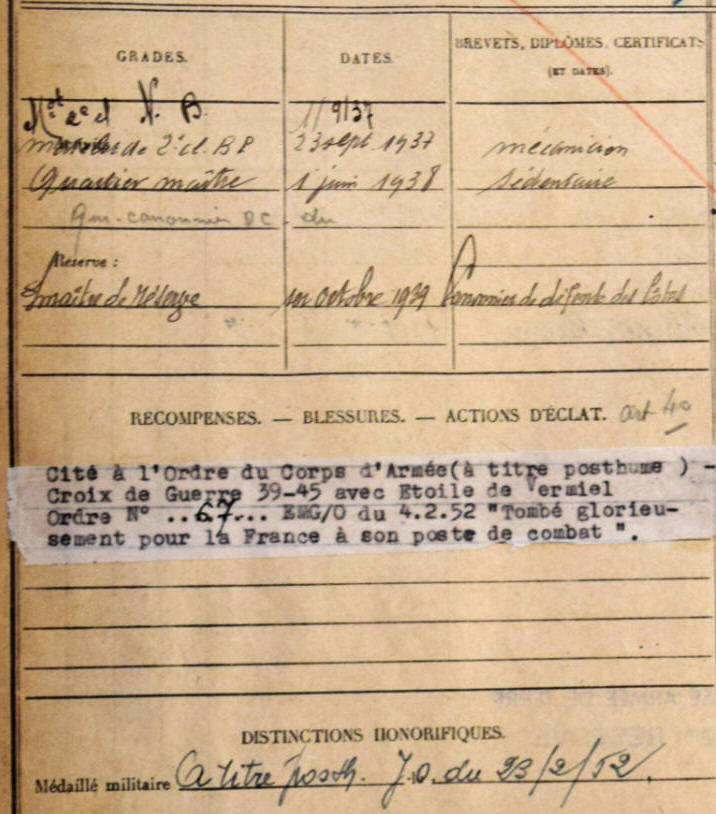 GRADES. DATES. BREVETS, DIPLÔMES, CERTIFICATS
(ET DATES).
Mot 2e cl N. B. 1/9/37
de 2e cl. BP 23 sept 1937 mécanicien
Quartier maître 1 juin 1938 sédentaire
Qm. canonnier DC. du
Réserve :
maître de réserve 1er octobre 1939 Canonnier de défense des Côtes
RECOMPENSES. — BLESSURES. — ACTIONS D'ÉCLAT. art 40
Cité à l'Ordre du Corps d'Armée(à titre posthume ) -
Croix de Guerre 39-45 avec Etoile de Vermiel
Ordre N° ..67... EMG/O du 4.2.52 "Tombé glorieu-
sement pour la France à son poste de combat ".
DISTINCTIONS HONORIFIQUES.
Médaillé militaire A titre posth. J.O. du 23/2/52.